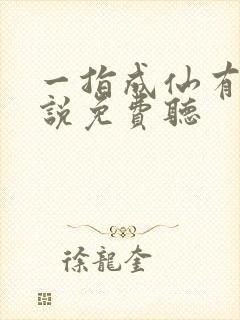 一指成仙有
說免費聽
徐龍奎